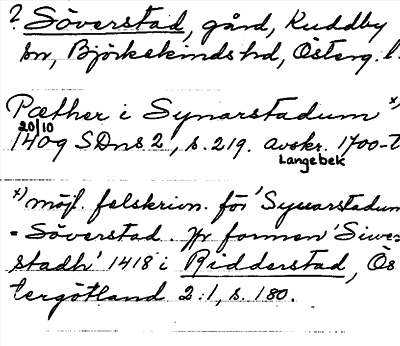 ? Söverstad, gård, Kuddby
sn, Björkekinds hd, Österg. l.
Pæther i Synarstadum x)
20/10
1409 SDns 2, s. 219. avskr. 1700-t
Langebek
x) möjl. felskrivn. för 'Syuarstadum
= Söverstad jfr formen 'Siwer
stadh' 1418 i Ridderstad, Ös
tergötland 2:1, s. 180.